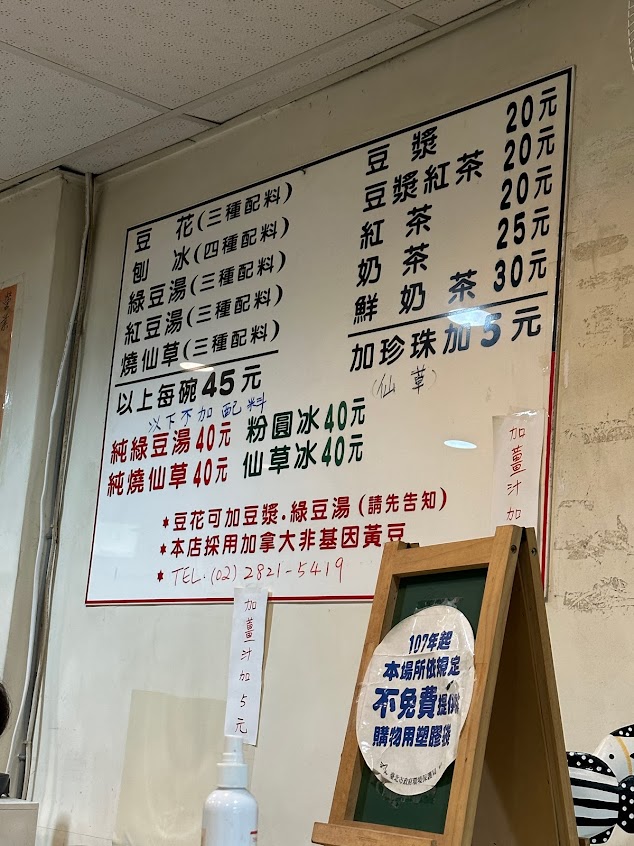 豆花(三種配料)
刨冰(四種配料)
綠豆湯(三種配料)
紅豆湯(三種配料)
燒仙草(三種配料)
以上每碗45元
以下不加配料
純綠豆湯40元 粉圓冰40元
純燒仙草40元 仙草冰40元
豆漿 20元
豆漿紅茶 20元
紅茶 20元
奶茶 25元
鮮奶茶 30元
加珍珠加5元
(仙草)
*豆花可加豆漿.綠豆湯(請先告知)
*本店採用加拿大非基因黃豆
*TEL.(02)2821-5419
加薑汁加
加薑汁加5元
107年起
本場所依規定
不免費提供
購物用塑膠袋
臺北市政府環境保護局